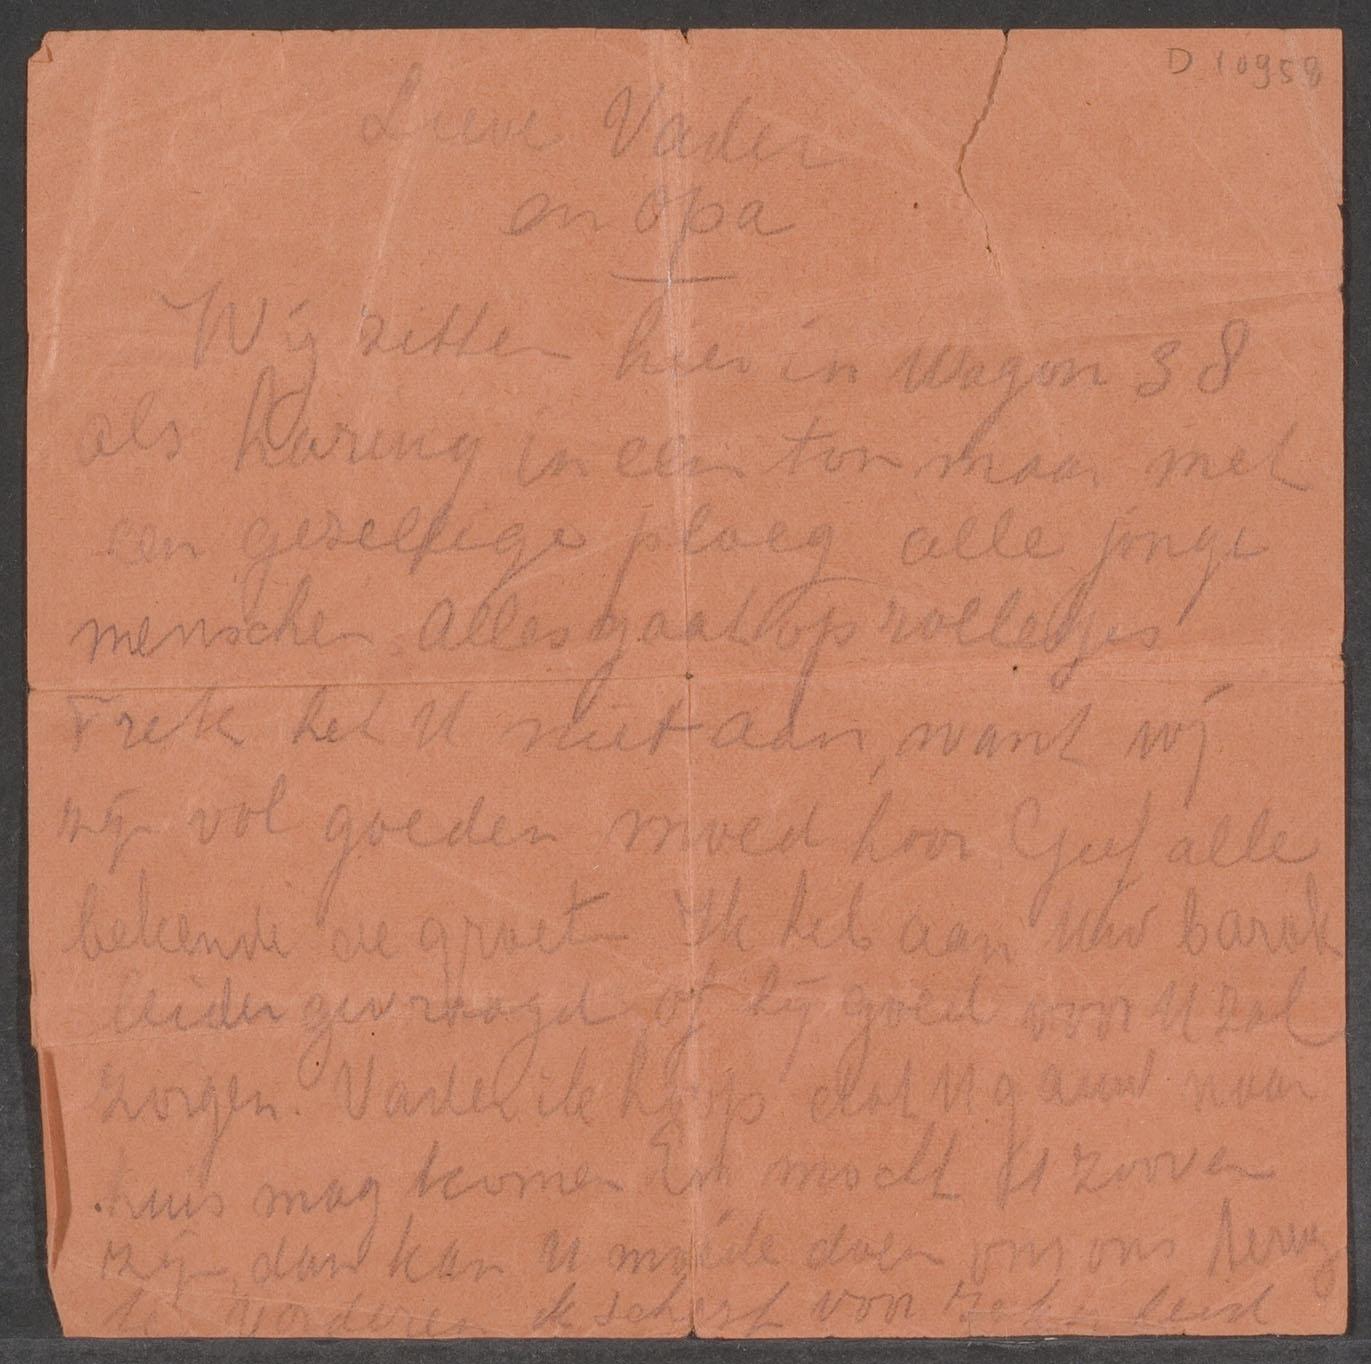 D 10958
Lieve Vader
en Opa
Wij zitten hier in Wagon 38
als haring in een ton maar met
een gezellige ploeg alle jonge
menschen. Alles gaat op rolletjes
Trek het U niet aan, want wij
zijn vol goeden moed hoor Geef alle
bekende de groeten Ik heb aan Uw barak
leider gevraagd of hij goed voor U zal
zorgen. Vader ik hoop dat U gauw naar
huis mag komen En mocht U zoover
zijn, dan kan U moeite doen om ons terug
te vorderen ik schryf voor